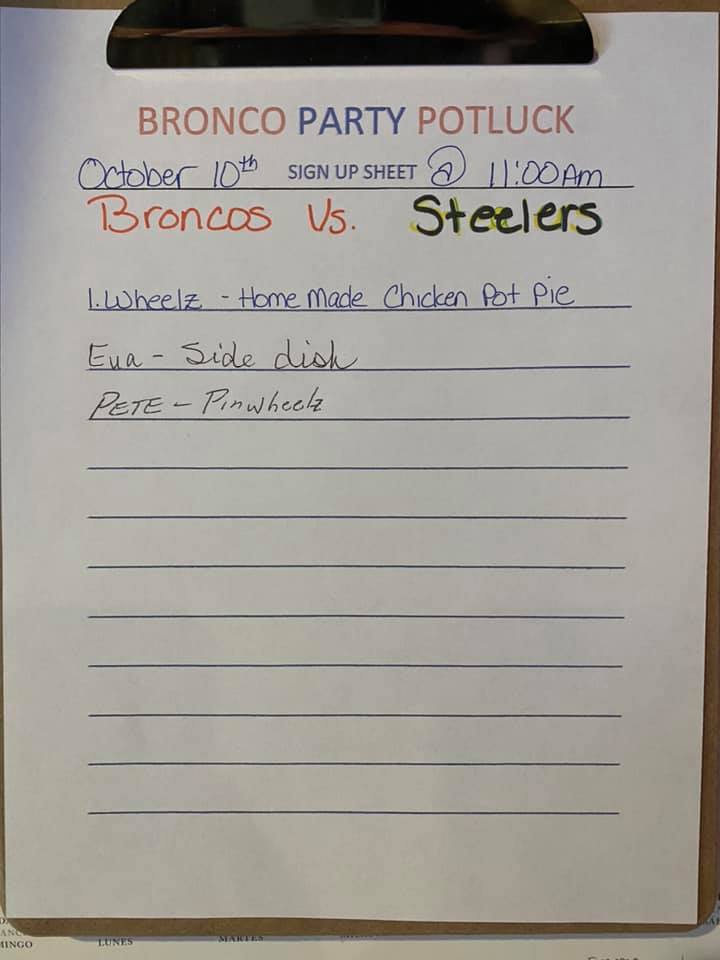 BRONCO PARTY POTLUCK
October 10th SIGN UP SHEET @ 11:00 Am
Broncos Vs. Steelers
1. Wheelz - Home Made Chicken Pot Pie
Eva - Side dish
PETE - Pinwheelz
MINGO LUNES MARTES